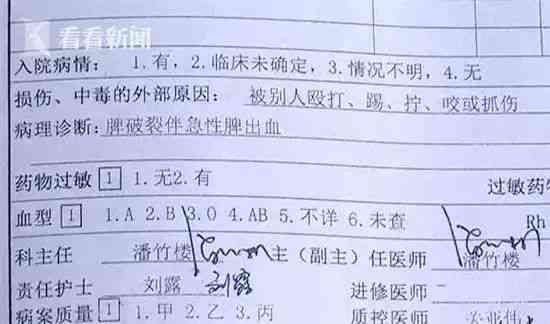 看看新闻
入院病情: 1.有, 2.临床未确定, 3.情况不明, 4.无
损伤、中毒的外部原因: 被别人殴打、踢、拧、咬或抓伤
病理诊断: 脾破裂伴急性脾出血
药物过敏 1 1.无2.有 过敏药
血型 1 1.A 2.B 3.O 4.AB 5.不详 6.未查 Rh
科主任 潘竹楼 主(副主)任医师 潘竹楼
责任护士 刘露 刘露 进修医师
病案质量 1 1.甲 2.乙 3.丙 质控医师